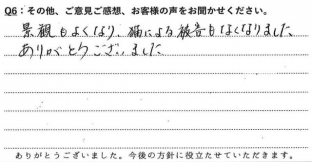 Q6：その他、ご意見ご感想、お客様の声をお聞かせください。
景観もよくなり、猫による被害もなくなりました
ありがとうございました
ありがとうございました。今後の方針に役立たせていただきます。